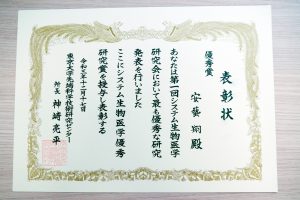 表彰状
優秀賞
安藝 翔 殿
あなたは第一回システム生物医学
研究会において最も優秀な研究
発表を行いました
ここにシステム生物医学優秀
研究賞を授与し表彰する
令和元年十二月十七日
東京大学先端科学技術研究センター
所長 神崎亮平